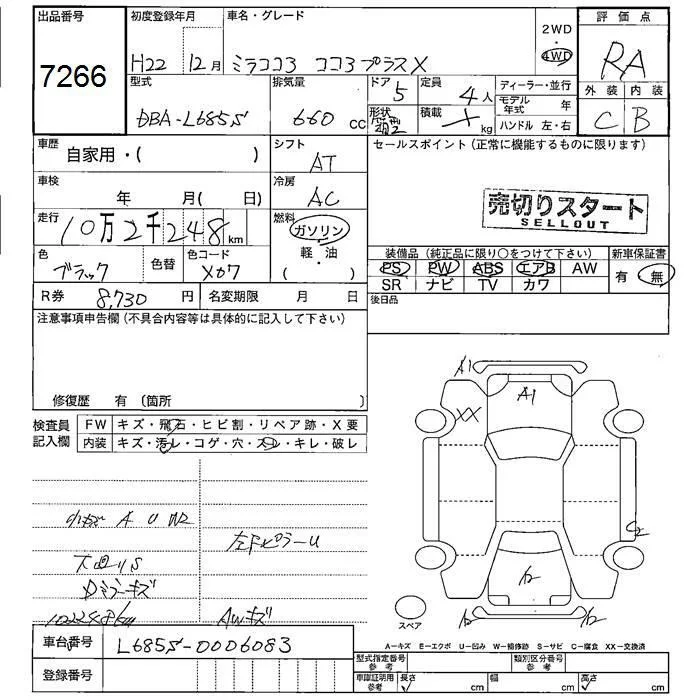 出品番号
7266
初度登録年月
H22 12月
車名・グレード
ミラココア ココアプラスX
2WD
4WD
評価点
RA
外装 内装
C B
型式
DBA-L685S
排気量
660 cc
ドア
5
定員
4人
形状
積載
kg
ディーラー・並行
モデル年式 年
ハンドル 左・右
車歴
自家用・( )
シフト
AT
セールスポイント(正常に機能するものに限ります)
車検
年 月( 日)
冷房
AC
売切りスタート
SELLOUT
走行
10万2千248km
燃料
ガソリン
・
軽・油
( )
色
ブラック
色替
色コード
X07
装備品(純正品に限り○をつけて下さい)
新車保証書
PS PW ABS エアB AW
SR ナビ TV カワ
有 無
R券 8,730円
名変期限 月 日
後日品
注意事項申告欄(不具合内容等は具体的に記入して下さい)
修復歴 有(箇所 )
検査員記入欄
FW キズ・飛石・ヒビ割・リペア跡・X要
内装 キズ・汚レ・コゲ・穴・スレ・キレ・破レ
小キズ A U W2
左Fピラ-U
Dミラーキズ
102248km
AWキズ
A1
A1
XX
C2
スペア
A-キズ E-エクボ U-凹み W-補修跡 S-サビ C-腐食 XX-交換済
車台番号 L685S-0006083
登録番号
型式指定番号
参考
類別区分番号
参考
車庫証明用
参考
長さ cm
幅 cm
高さ cm